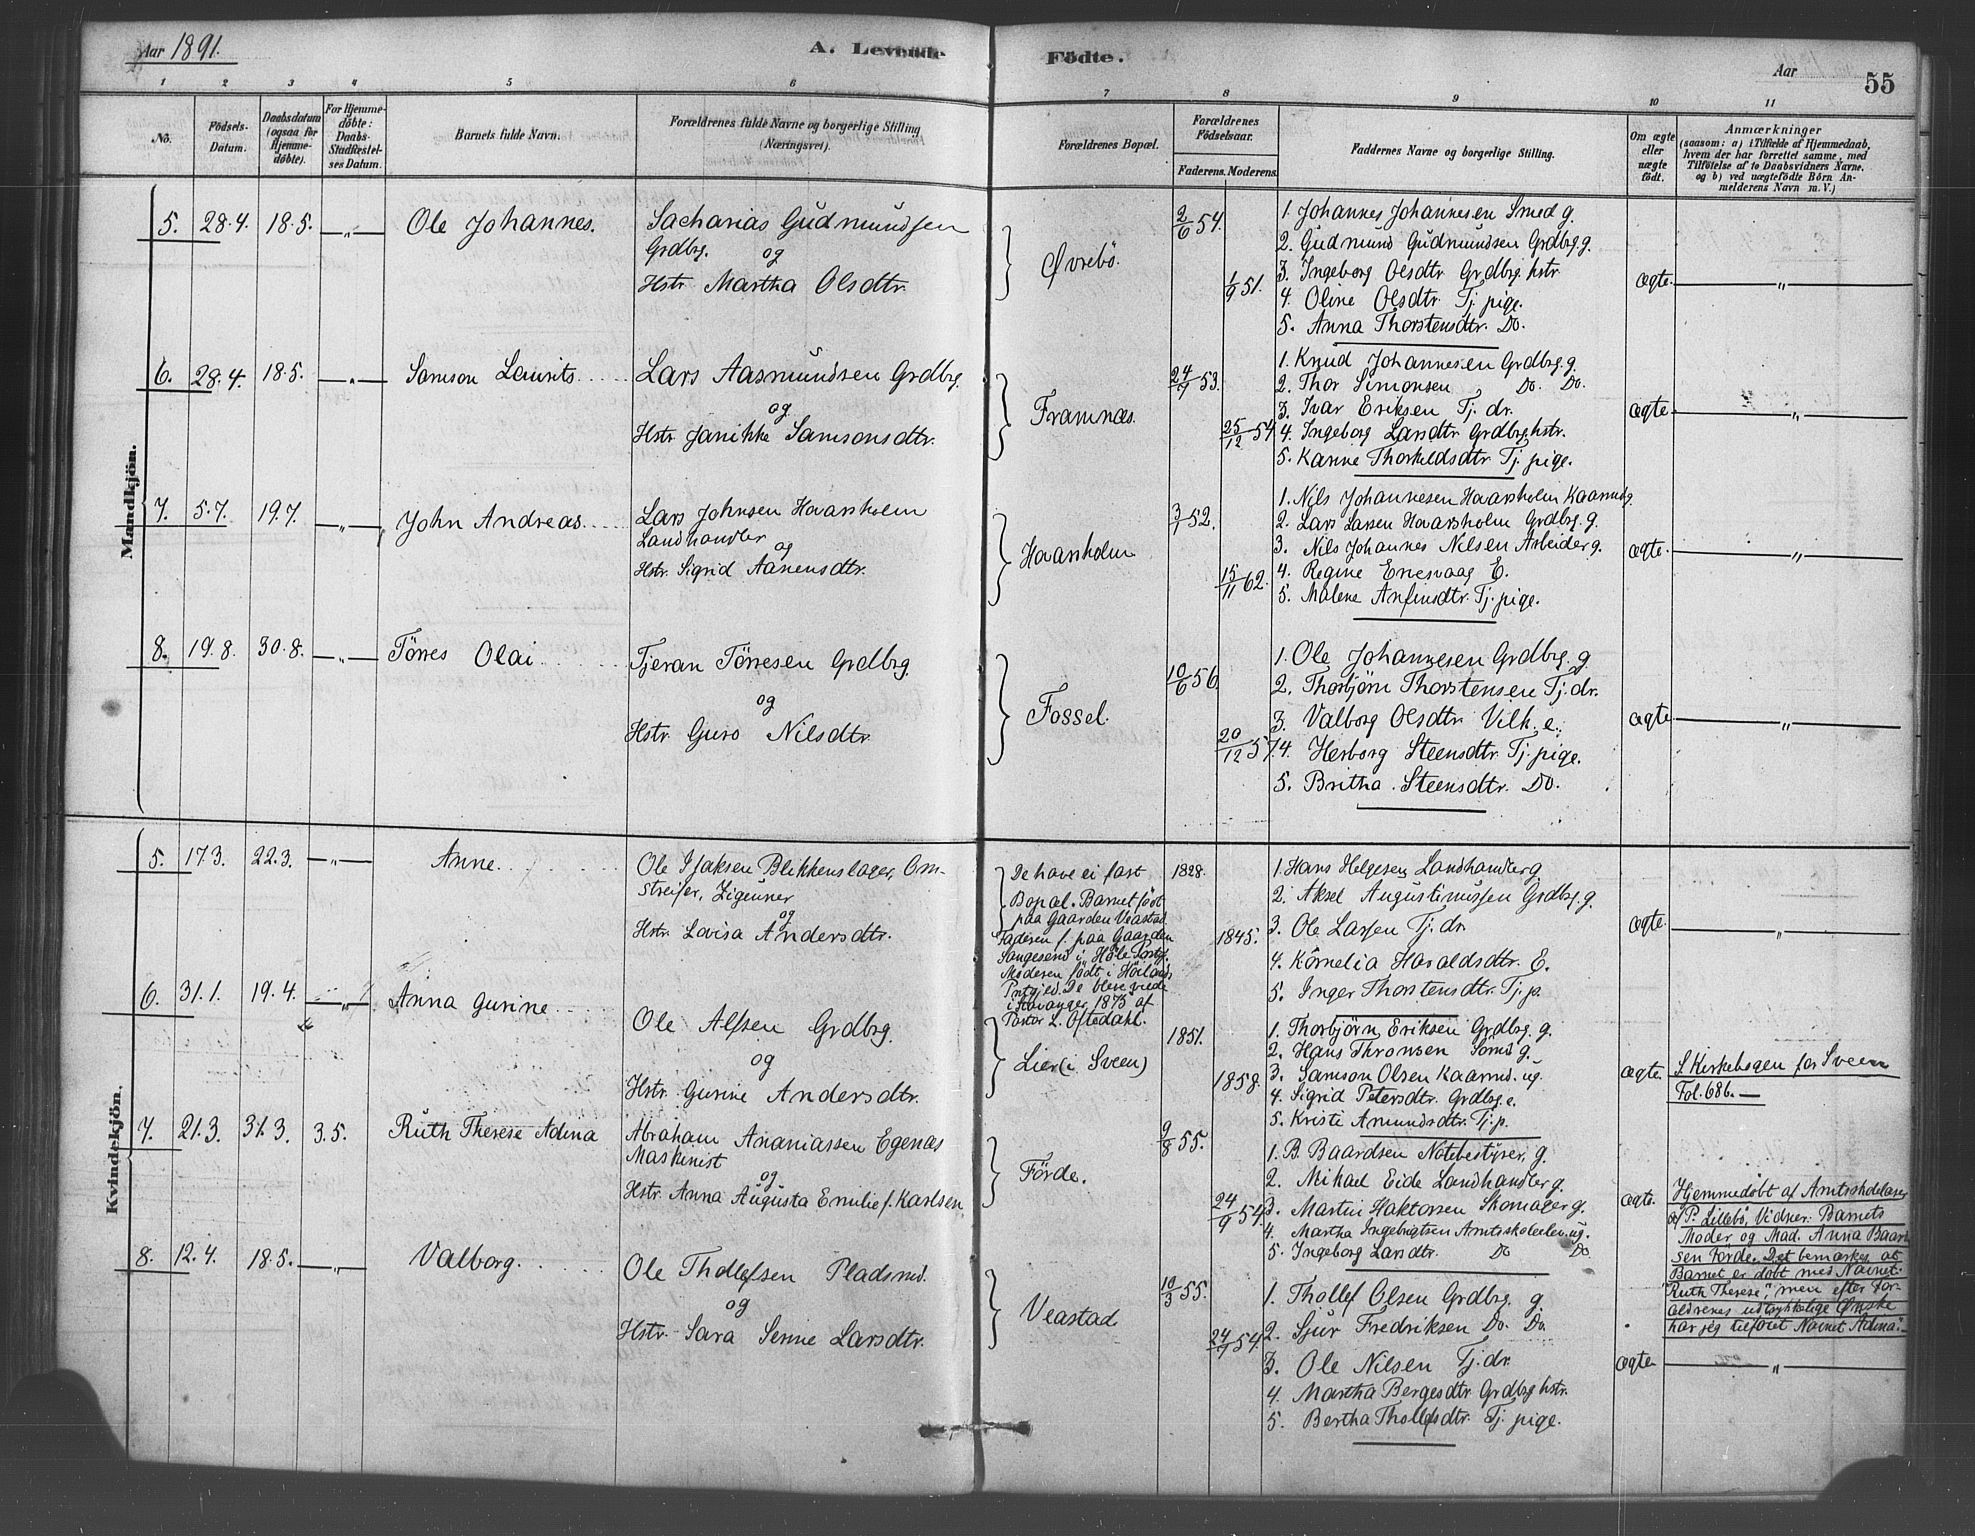 Aar 1891.
A. Levende Födte.
Aar
55
1 2 3 4 5 6 7 8 9 10 11
No.
Födsels-
Datum.
Daabsdatum
(ogsaa for
Hjemme-
döbte).
For Hjemme-
döbte:
Daabs-
Stadfæstel-
ses Datum.
Barnets fulde Navn.
Forældrenes fulde Navne og borgerlige Stilling
(Næringsvei).
Forældrenes Bopæl.
Forældrenes
Födselsaar.
Faderens. Moderens.
Faddernes Navne og borgerlige Stilling.
Om ægte
eller
uægte
födt.
Anmærkninger
(saasom: a) i Tilfælde af Hjemmedaab,
hvem der har forrettet samme, med
Tilföielse af to Daabsvidners Navne,
og b) ved uægtefödte Börn An-
melderens Navn m. V.)
Mandkjön.
5. 28.4. 18.5. —„— Ole Johannes.
Sacharias Gudmundsen
Grdbrg. og
Hstr Martha Olsdtr.
Øvrebö.
2/6 54.
1/9 51.
1. Johannes Johannesen Smed g.
2. Gudmund Gudmundsen Grdbrg. g.
3. Ingeborg Olsdtr Grdbrg. hstr.
4. Oline Olsdtr Tj. pige.
5. Anna Thorstensdtr. Do.
ægte. —„—
6. 28.4. 18.5. —„— Samson Laurits
Lars Aasmundsen Grdbrg
og
Hstr Janikke Samsonsdtr.
Framnæs.
24/9 53.
25/12 54
1. Knud Johannesen Grdbrg. g.
2. Thor Simonsen Do. Do.
3. Ivar Eriksen Tj. dr.
4. Ingeborg Larsdtr Grdbrg. hstr.
5. Karine Thorkildsdtr Tj. pige.
ægte. —„—
7. 5.7. 19.7. —„— John Andreas
Lars Johnsen Hovarsholm
Landhandler
og
Hstr. Sigrid Aanensdtr.
Hovarsholm
3/7 52.
15/11 62.
1. Nils Johannesen Hovarsholm Kaarmd g.
2. Lars Larsen Hovarsholm Grdbrg. g.
3. Nils Johannes Nilsen Arbeider g.
4. Regine Enesvaag E.
5. Malene Anfinsdtr. Tj. pige.
ægte. —„—
8. 19.8. 30.8. —„— Törres Olai
Tjeran Törresen Grdbrg.
og
Hstr Guro Nilsdtr
Fossel.
10/6 56.
20/12 57.
1. Ole Johannesen Grdbrg. g.
2. Thorbjörn Thorstensen Tj. dr.
3. Valborg Olsdtr Vilk. e.
4. Herborg Steensdtr. Tj. pige.
5. Britha Steensdtr. Do.
ægte —„—
Kvindekjön.
5. 17.3. 22.3. —„— Anne
Ole Isaksen Blikkenslager, Om-
streifer, Zigeuner
og
Hstr. Lovisa Andersdtr.
De have ei fast
Bopæl. Barnet födt
paa Gaarden Veastad
Faderen f. paa Gaarden
i Höle Prstgj.
Moderen födt i Höiland
Prstgjed. De bleve viede
i Stavanger 1875 af
Pastor L. Oftedahl.
1828.
1845.
1. Hans Helgesen Landhandler g.
2. Aksel Augustinussen Grdbrg. g.
3. Ole Larsen Tj. dr.
4. Kornelia Haraldsdtr. E.
5. Inger Thorstensdtr. Tj. p.
ægte. —„—
6. 31.1. 19.4. —„— Anna Gurine
Ole Alfsen Grdbrg.
og
Hstr. Gurine Andersdtr.
Lier (i Sveen)
1851.
1858.
1. Thorbjörn Eriksen Grdbrg. g.
2. Hans Thronsen Smd g.
3. Samson Olsen Kaarmd. ug.
4. Sigrid Petersdtr. Grdbrg. e.
5. Kristi Amundsdtr. Tj. p.
ægte.
S. Kirkebogen for Sveen
Fol. 686. —
7. 21.3. 31.3. 3.5. Ruth Therese Adina
Abraham Ananiassen Egenæs
Maskinist
og
Hstr. Anna Augusta Emilie f. Karlsen.
Förde.
9/8 55.
24/9 54.
1. B. Baardsen Notebestyrer, g.
2. Mikael Eide Landhandler g.
3. Martin Haktorsen Skomager g.
4. Martha Ingebrigtsen Amtsskolelær. ug.
5. Ingeborg Larsdtr. Do Do.
ægte.
Hjemmedöbt af Amtsskolelærer
P. Lillebö, Vidner: Barnets
Moder og Mad. Anna Baard-
sen Förde. Det bemærkes, at
Barnet er döbt med Navnet
"Ruth Therese", men efter For-
ældrenes udtrykkelige Ønske
har jeg tilföiet Navnet "Adina".
8. 12.4. 18.5. —„— Valborg.
Ole Thollefsen Pladsmd.
og
Hstr. Sara Serine Larsdtr.
Veastad
10/3 55.
24/9 54.
1. Thollef Olsen Grdbrg. g.
2. Sjur Fredriksen Do. Do.
3. Ole Nilsen Tj. dr.
4. Martha Bergesdtr. Grdbrg hstr.
5. Bertha Thollefsdtr. Tj. pige.
ægte —„—